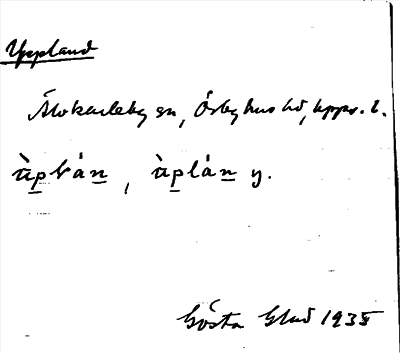 Uppland
Älvkarleby sn, Örbyhus hd, Upps. l.
ùpbán, ùplán y.
Gösta Glad 1935